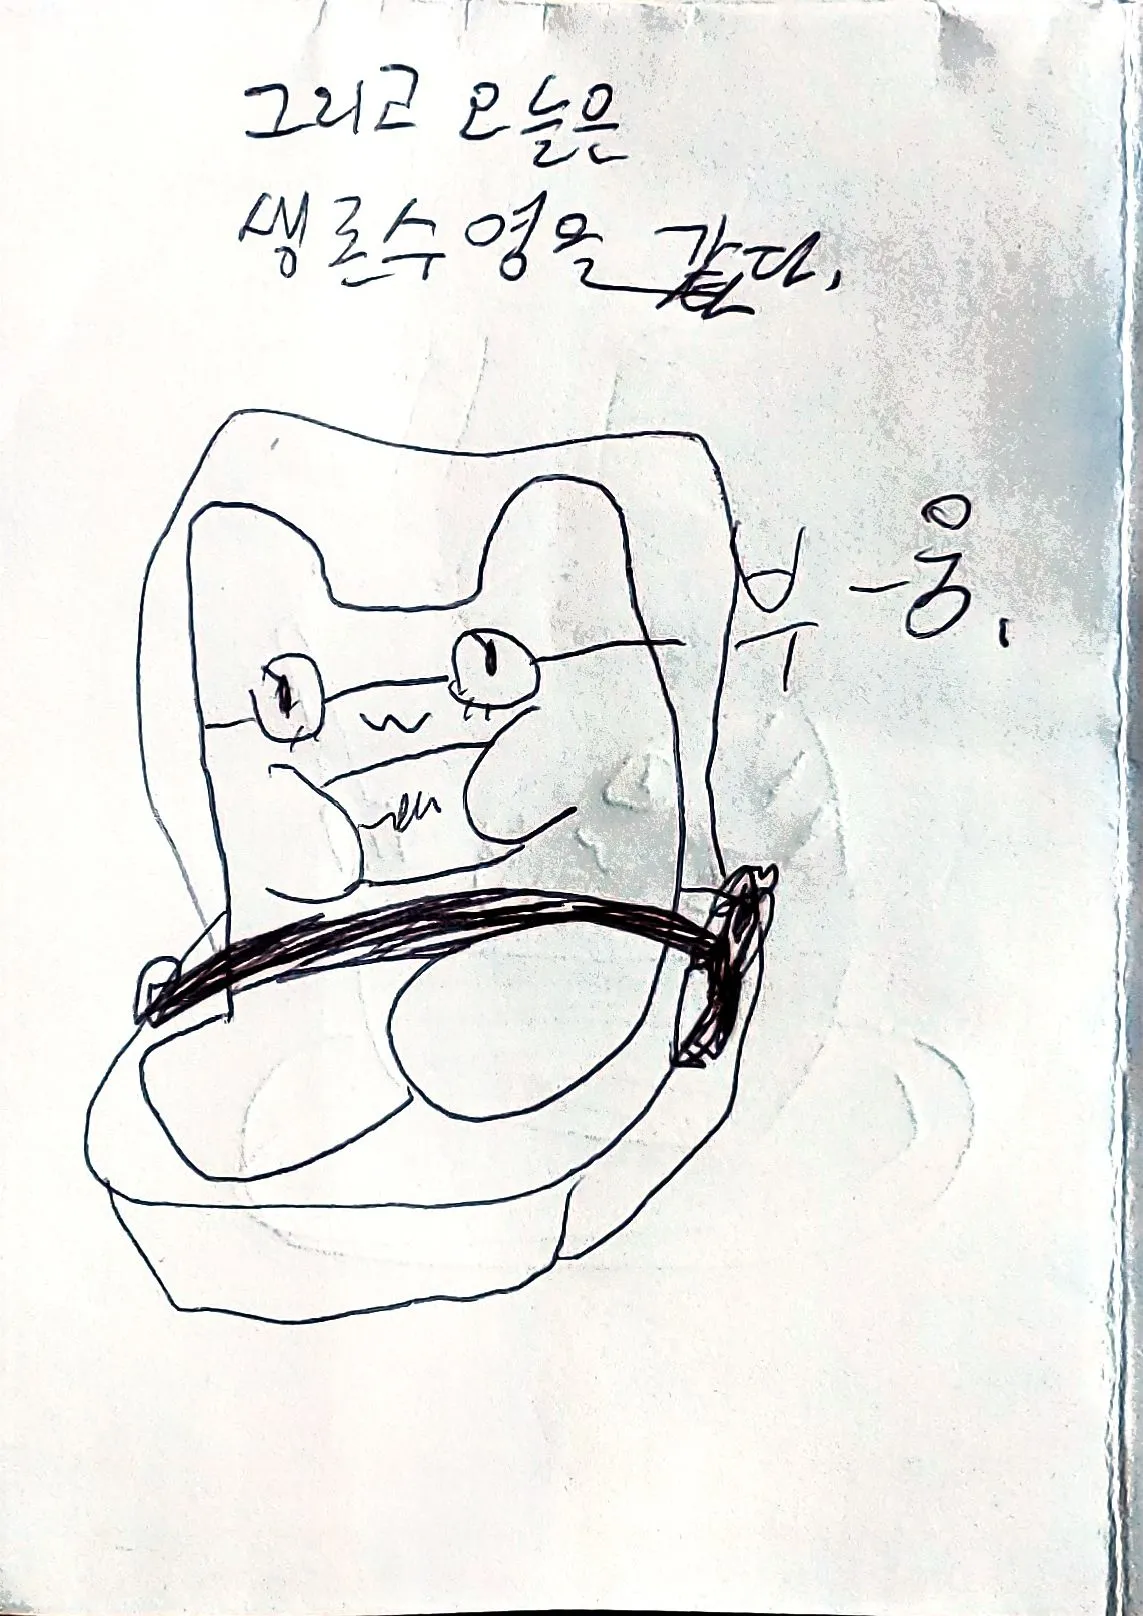 그리고 오늘은
생존수영을 갔다.
부 - 웅.